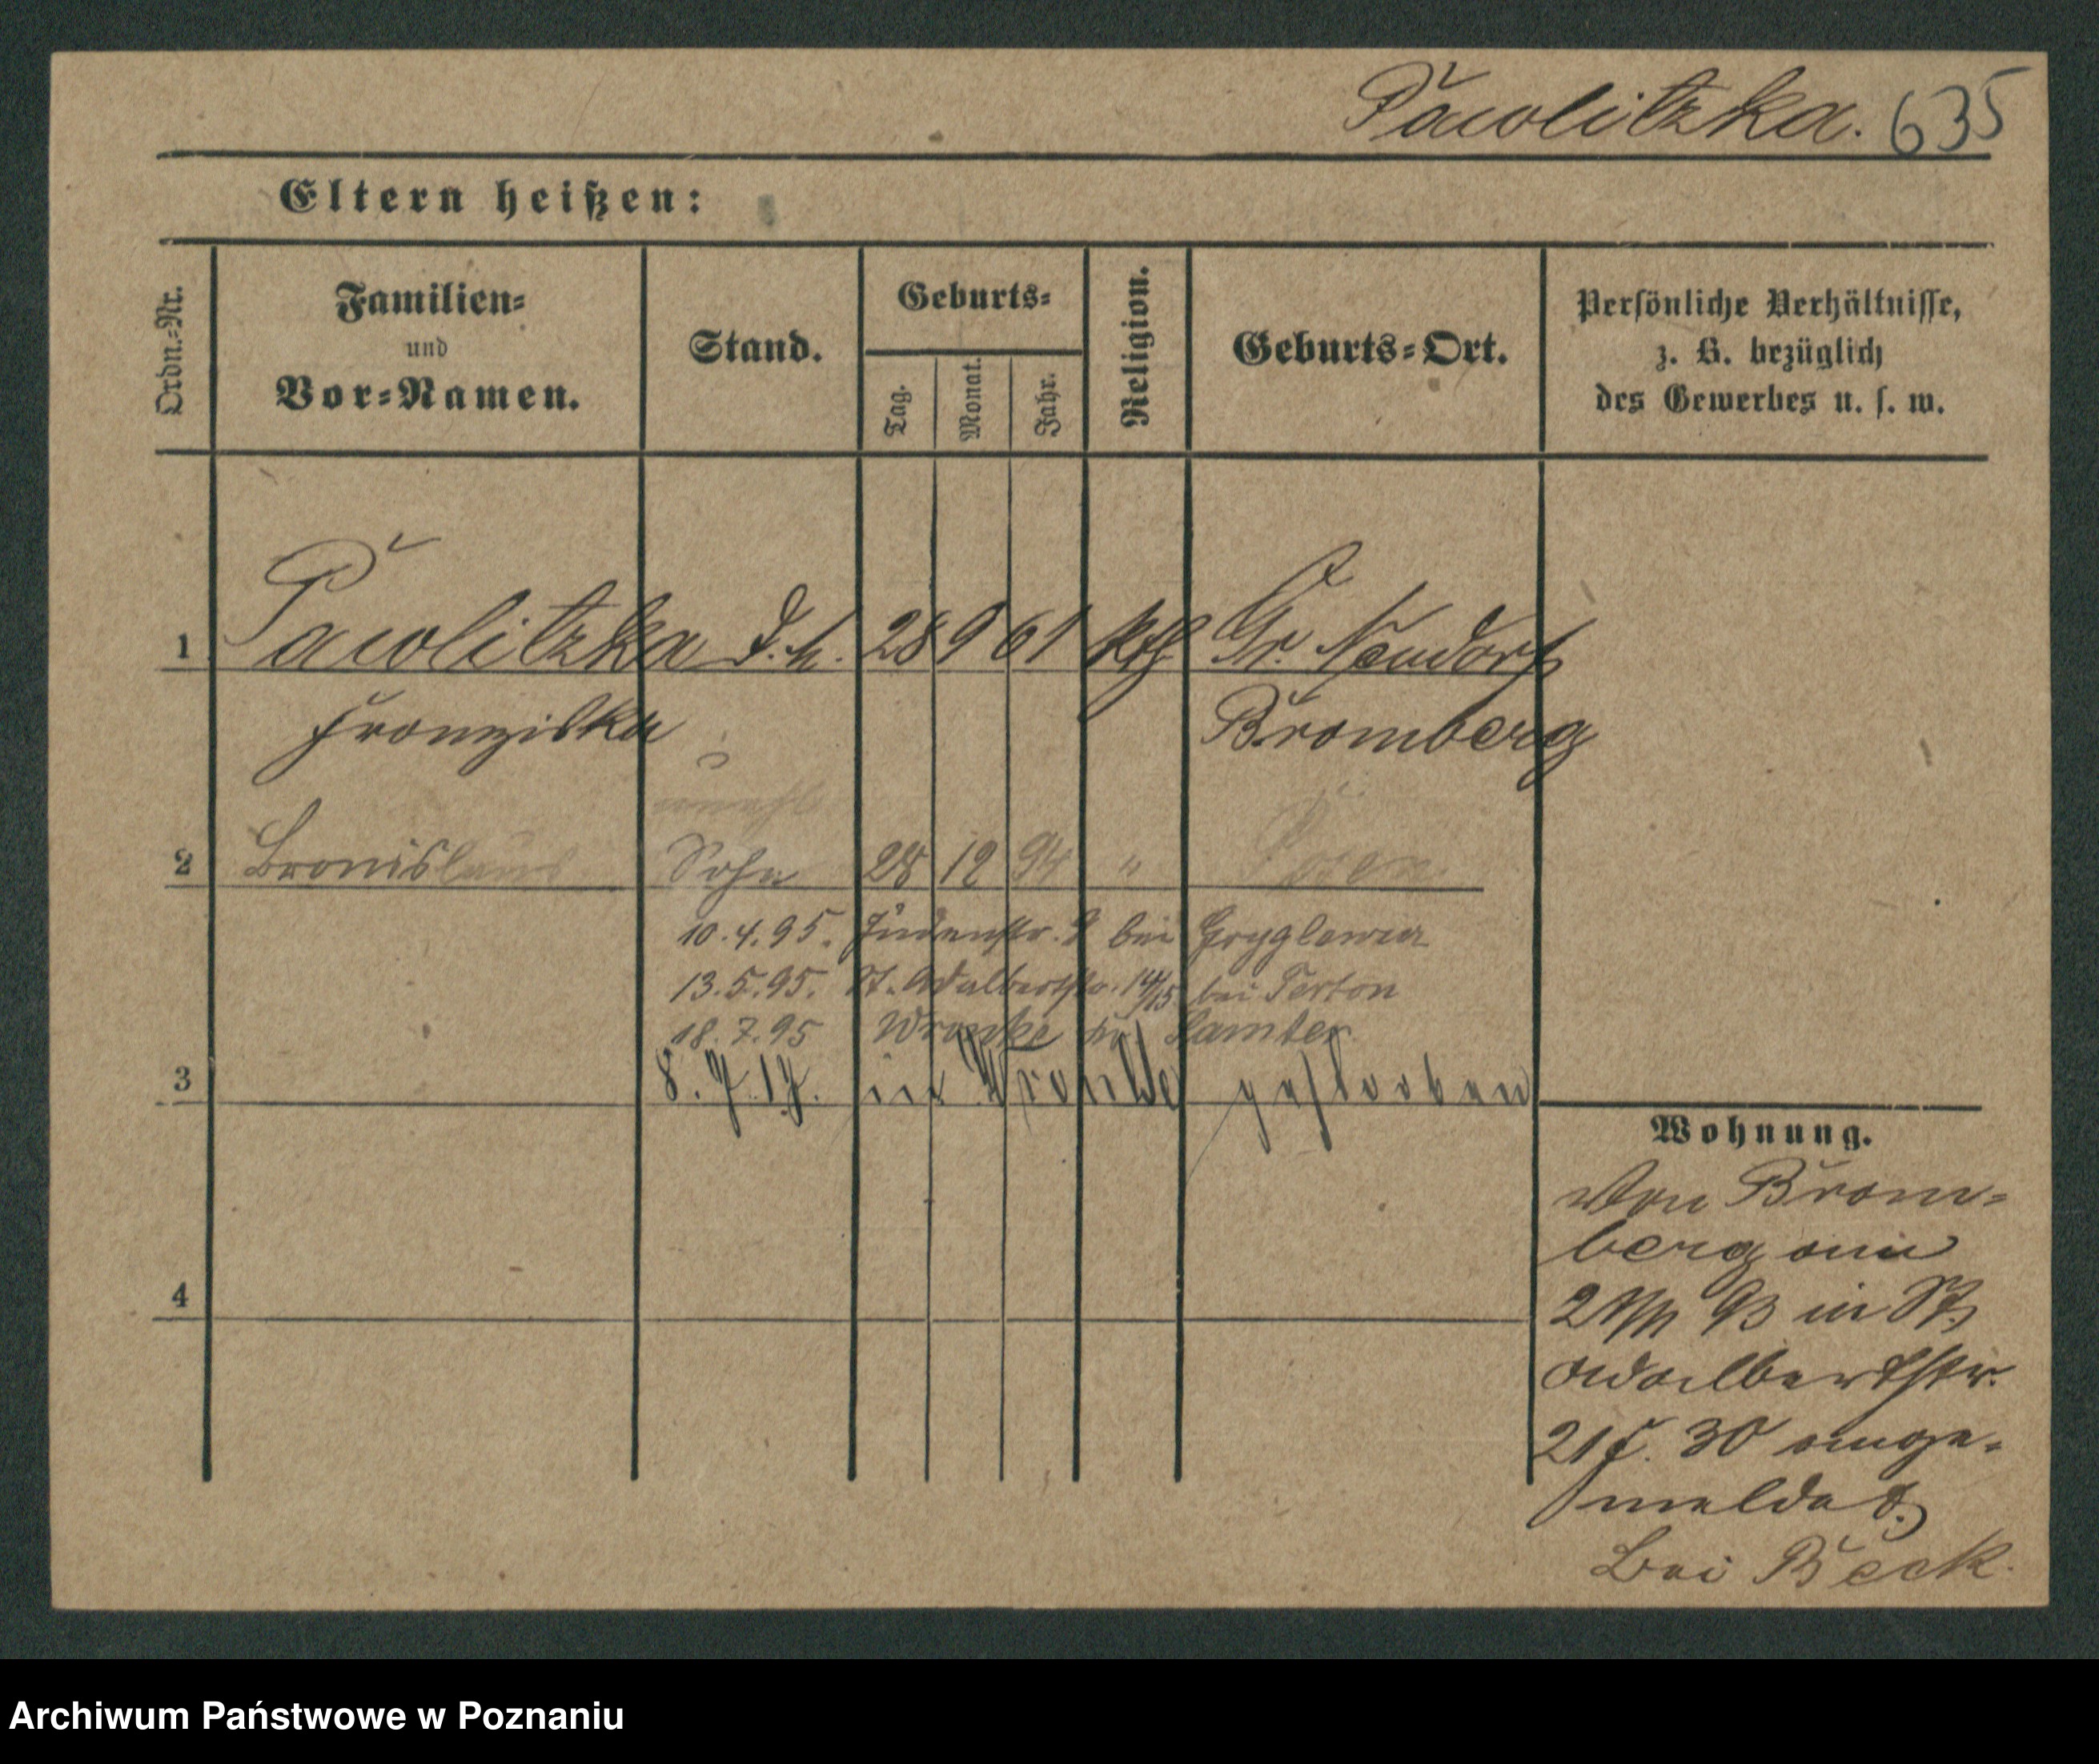 Pawlitzka. 635
Eltern heißen:
Ordn.-Nr.
Familien-
und
Vor-Namen.
Stand.
Geburts-
Tag.
Monat.
Jahr.
Religion.
Geburts-Ort.
Persönliche Verhältnisse,
z. B. bezüglich
des Gewerbes u. s. w.
1 Pawlitzka 28 9 61 kth Gr. Neudorf
Franziska Bromberg
unehl
2 Bronislaus Sohn 28 12 94 " Posen
10.4.95. Judenstr. bei
13.5.95. St. Adalbertstr. 14/15 bei Terton
18.7.95 Wronke Samter
3 8.7.17. in Wronke gestorben
Wohnung.
Von Brom-
berg am
93 in St.
Adalbertstr.
30 ange-
meldet.
bei Beck.
4
Archiwum Państwowe w Poznaniu